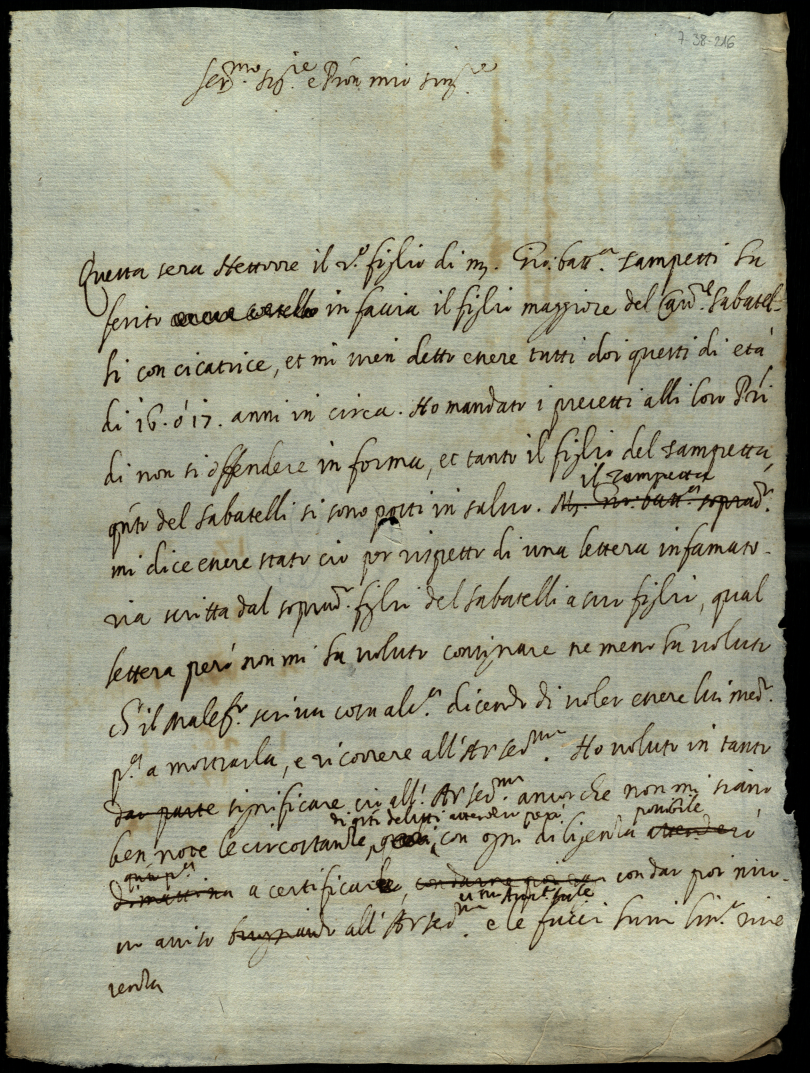 7-38-216
Ser.mo Sig.re e Pron mio sing.e
Questa sera Hettorre il 2.o figlio di m. Gio: batt.a Sampetti ha
ferito in faccia il figlio maggiore del Cav.re Sabatel-
li con cicatrice, et mi vien detto essere tutti doi questi di età
di 16. ó 17. anni in circa. Ho mandato i precetti alli loro Pri
di non si offendere in forma, et tanto il figlio del Sampetta,
il Zampetta
qnto del Sabatelli si sono posti in salvo. M. Gio: batt.a soprad.o
mi dice essere stato ciò per rispetto di una lettera infamato-
ria scritta dal soprad.o figlio del Sabatelli a suo figlio, qual
lettera però non mi ha voluto consignare ne meno ha voluto
ch il Malef.o scriva cosa alc.a dicendo di voler essere lui med.o
p.a a mostrarla, e ricorrere all'A v Ser.ma. Ho voluto in tanto
dar parte significare ciò all'A v Ser.ma ancor che non mi siano
di qsti delitti attenderò però possibile
ben note le circostanze, con ogni diligenza attenderò
dimattina a certificarle, con dar poi nuo-
vo avviso all'A v Ser.ma e le facci hum.